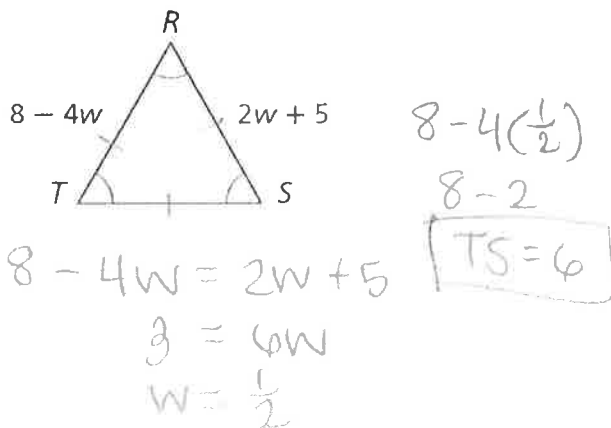 R
8 − 4w
2w + 5
T
S
8 - 4(1/2)
8 - 2
TS = 6
8 - 4w = 2w + 5
3 = 6w
w = 1/2